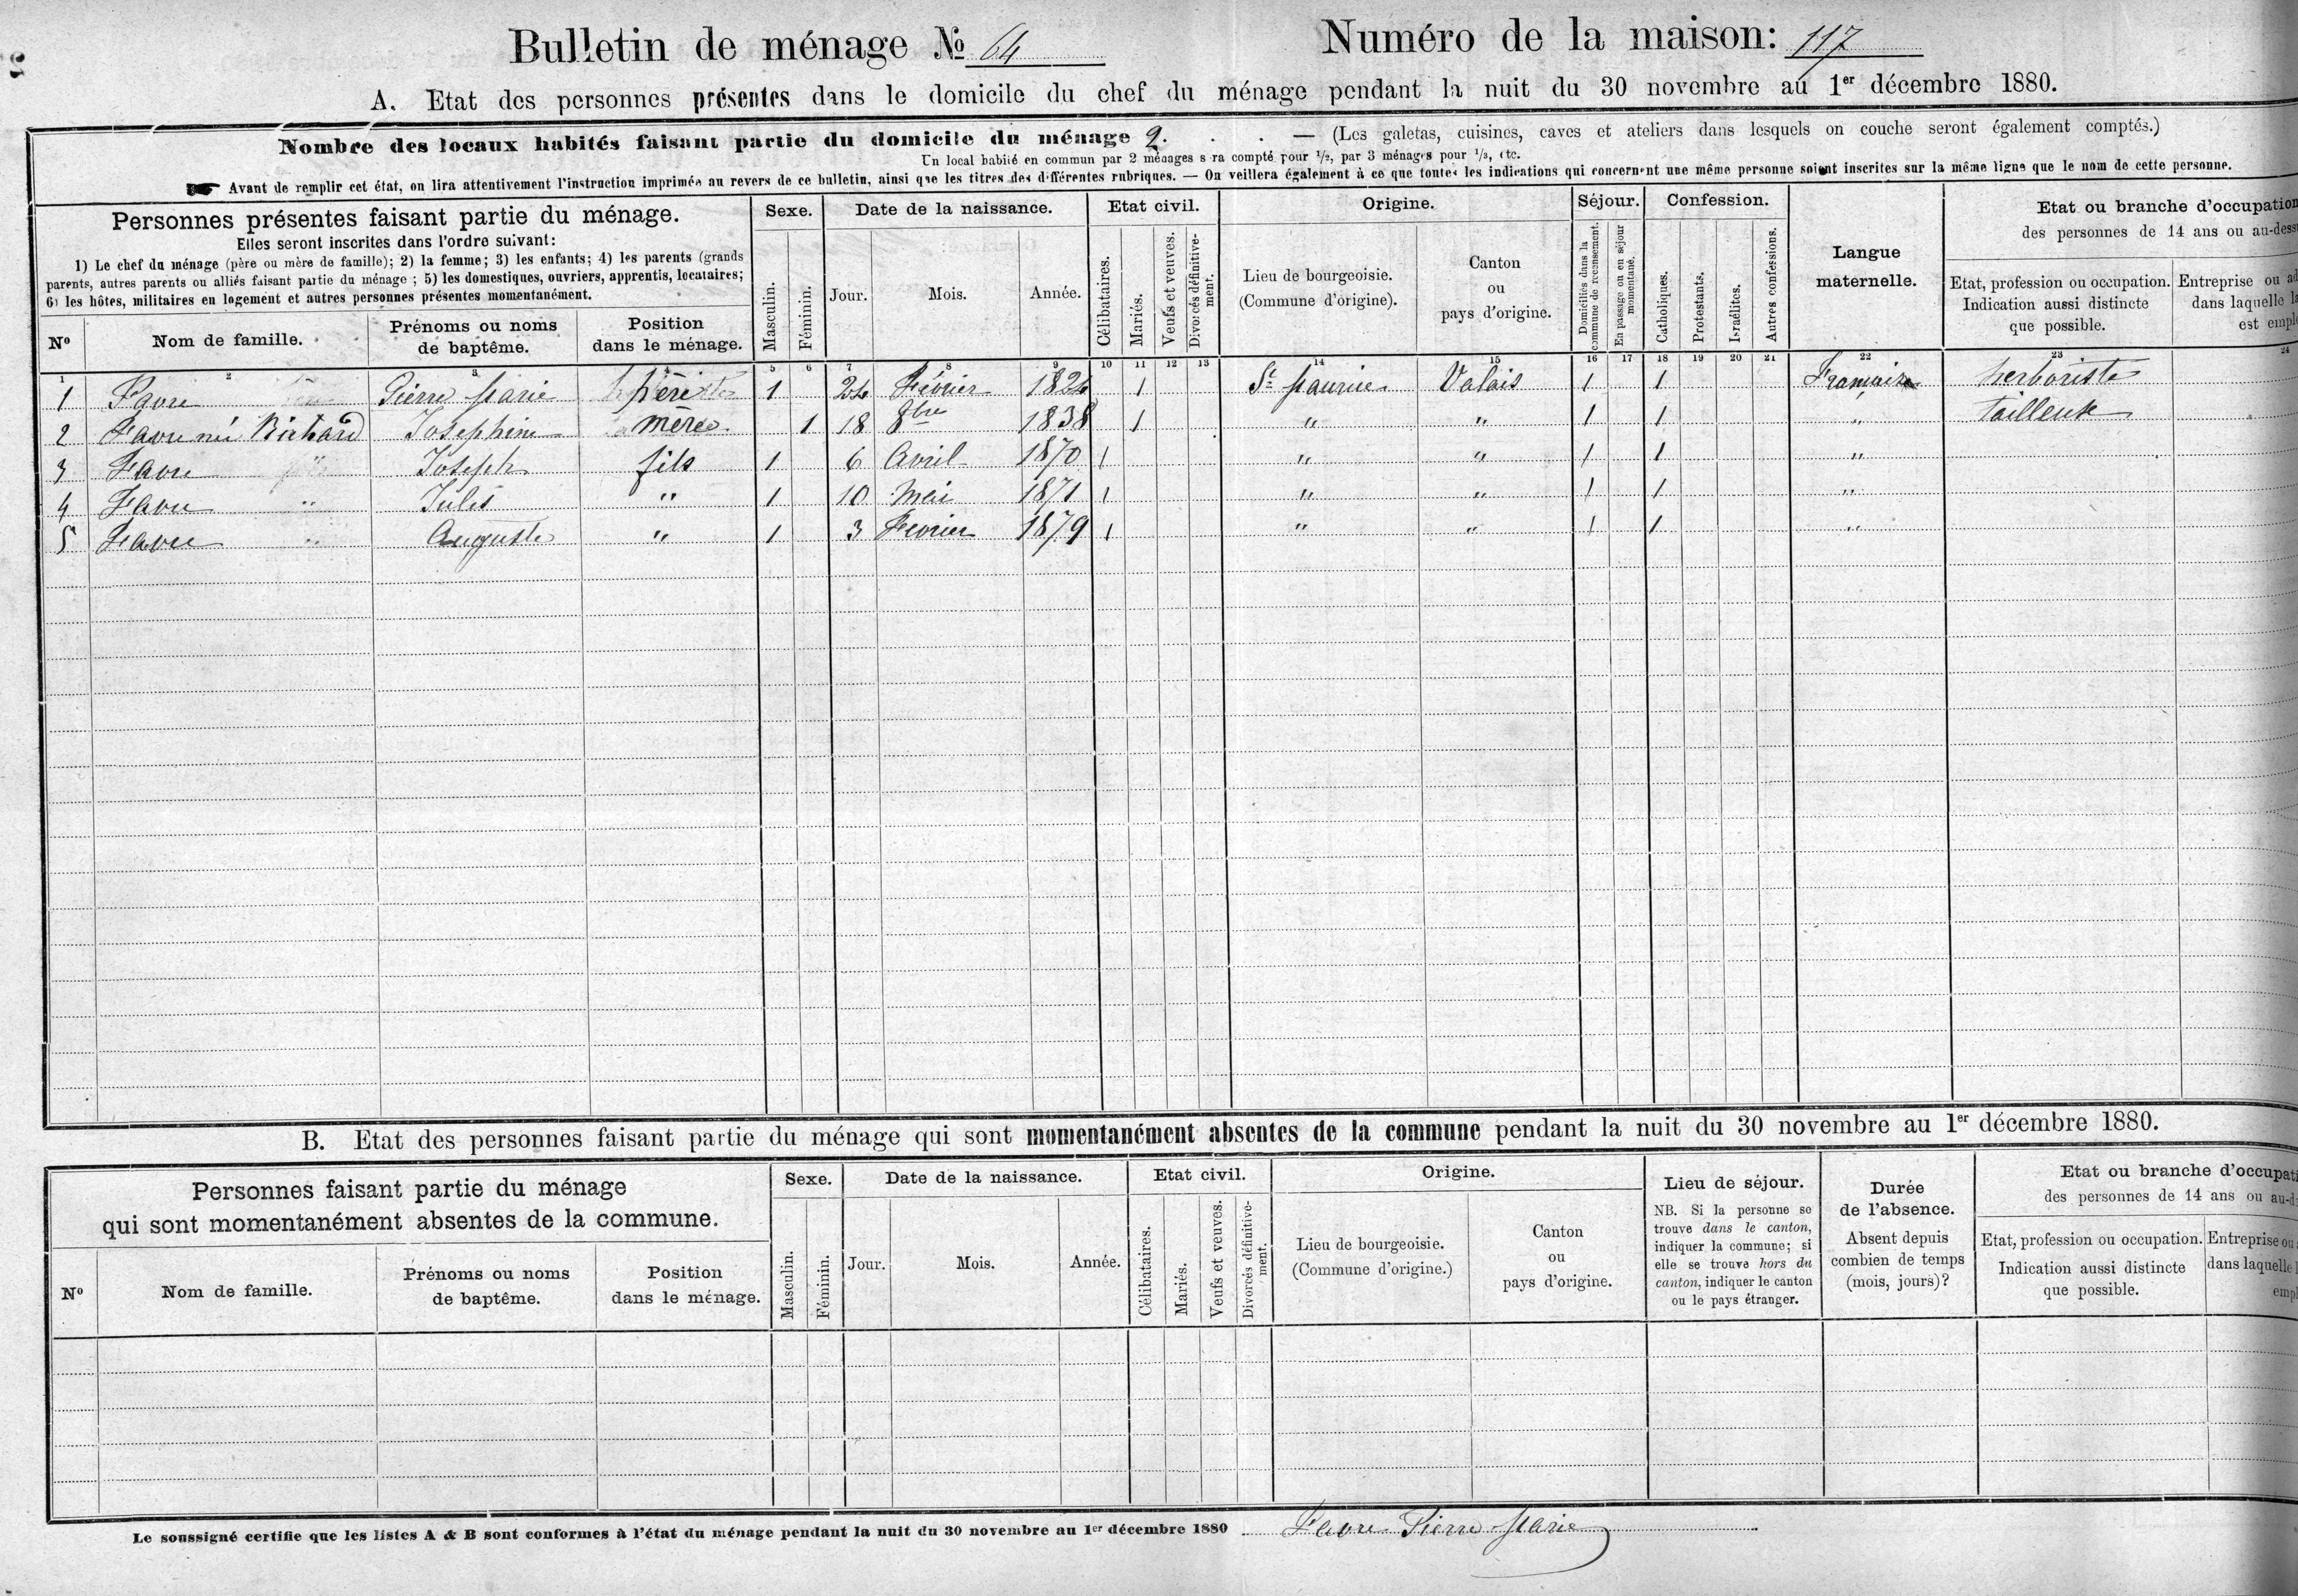 Bulletin de ménage № 64 Numéro de la maison: 117
A. Etat des personnes présentes dans le domicile du chef du ménage pendant la nuit du 30 novembre au 1er décembre 1880.
Nombre des locaux habités faisant partie du domicile du ménage 2. . . — (Les galetas, cuisines, caves et ateliers dans lesquels on couche seront également comptés.)
Un local habité en commun par 2 ménages sera compté pour 1/2, par 3 ménages pour 1/3, etc.
Avant de remplir cet état, on lira attentivement l'instruction imprimée au revers de ce bulletin, ainsi que les titres des différentes rubriques. — On veillera également à ce que toutes les indications qui concernent une même personne soient inscrites sur la même ligne que le nom de cette personne.
Personnes présentes faisant partie du ménage.
Elles seront inscrites dans l'ordre suivant:
1) Le chef du ménage (père ou mère de famille); 2) la femme; 3) les enfants; 4) les parents (grands
parents, autres parents ou alliés faisant partie du ménage ; 5) les domestiques, ouvriers, apprentis, locataires;
6) les hôtes, militaires en logement et autres personnes présentes momentanément.
Nº
Nom de famille.
Prénoms ou noms
de baptême.
Position
dans le ménage.
Sexe.
Masculin.
Féminin.
Date de la naissance.
Jour.
Mois.
Année.
Etat civil.
Célibataires.
Mariés.
Veufs et veuves.
Divorcés définitive-
ment.
Origine.
Lieu de bourgeoisie.
(Commune d'origine).
Canton
ou
pays d'origine.
Séjour.
Domiciliés dans la
commune de recensement.
En passage ou en séjour
momentané.
Confession.
Catholiques.
Protestants.
Israélites.
Autres confessions.
Langue
maternelle.
Etat ou branche d'occupation
des personnes de 14 ans ou au-dess
Etat, profession ou occupation.
Indication aussi distincte
que possible.
Entreprise ou ad
dans laquelle la
est emplo
1 2 3 5 6 7 8 9 10 11 12 13 14 15 16 17 18 19 20 21 22 23 24
1 Favre Pierre Marie père 1 24 Février 1824 1 St Maurice Valais 1 1 Française herboriste
2 Favre née Richard Josephine mère 1 18 8bre 1838 1 " " 1 1 " tailleuse
3 Favre Joseph fils 1 6 Avril 1870 1 " " 1 1 "
4 Favre " Jules " 1 10 Mai 1871 1 " " 1 1 "
5 Favre " Auguste " 1 3 Fevrier 1879 1 " " 1 1 "
B. Etat des personnes faisant partie du ménage qui sont momentanément absentes de la commune pendant la nuit du 30 novembre au 1er décembre 1880.
Personnes faisant partie du ménage
qui sont momentanément absentes de la commune.
Nº
Nom de famille.
Prénoms ou noms
de baptême.
Position
dans le ménage.
Sexe.
Masculin.
Féminin.
Date de la naissance.
Jour.
Mois.
Année.
Etat civil.
Célibataires.
Mariés.
Veufs et veuves.
Divorcés définitive-
ment.
Origine.
Lieu de bourgeoisie.
(Commune d'origine.)
Canton
ou
pays d'origine.
Lieu de séjour.
NB. Si la personne se
trouve dans le canton,
indiquer la commune; si
elle se trouve hors du
canton, indiquer le canton
ou le pays étranger.
Durée
de l'absence.
Absent depuis
combien de temps
(mois, jours)?
Etat ou branche d'occupati
des personnes de 14 ans ou au-d
Etat, profession ou occupation.
Indication aussi distincte
que possible.
Entreprise ou
dans laquelle l
empl
Le soussigné certifie que les listes A & B sont conformes à l'état du ménage pendant la nuit du 30 novembre au 1er décembre 1880 Favre Pierre Marie